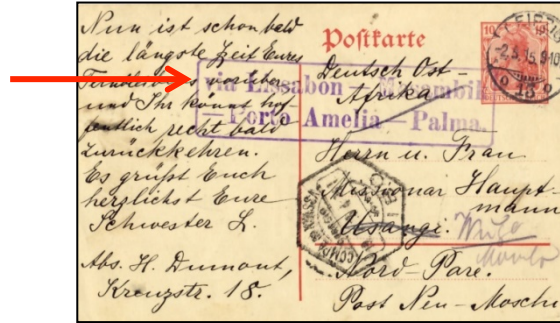 Nun ist schon bald
die längste Zeit Eures
vorüber
und Ihr könnt hof
fentlich recht bald
zurückkehren.
Es grüßt Euch
herzlichst Eure
Schwester L.
Abs. H. Dumont,
Kreuzstr. 18.
Postkarte
via Lissabon
– Porto Amelia – Palma.
Deutsch Ost-
Afrika
Herrn u. Frau
Missionar Haupt-
mann
Usangi
Nord-Pare.
Post Neu-Moschi
10
LEIPZIG
-2.3.15.9-10
13